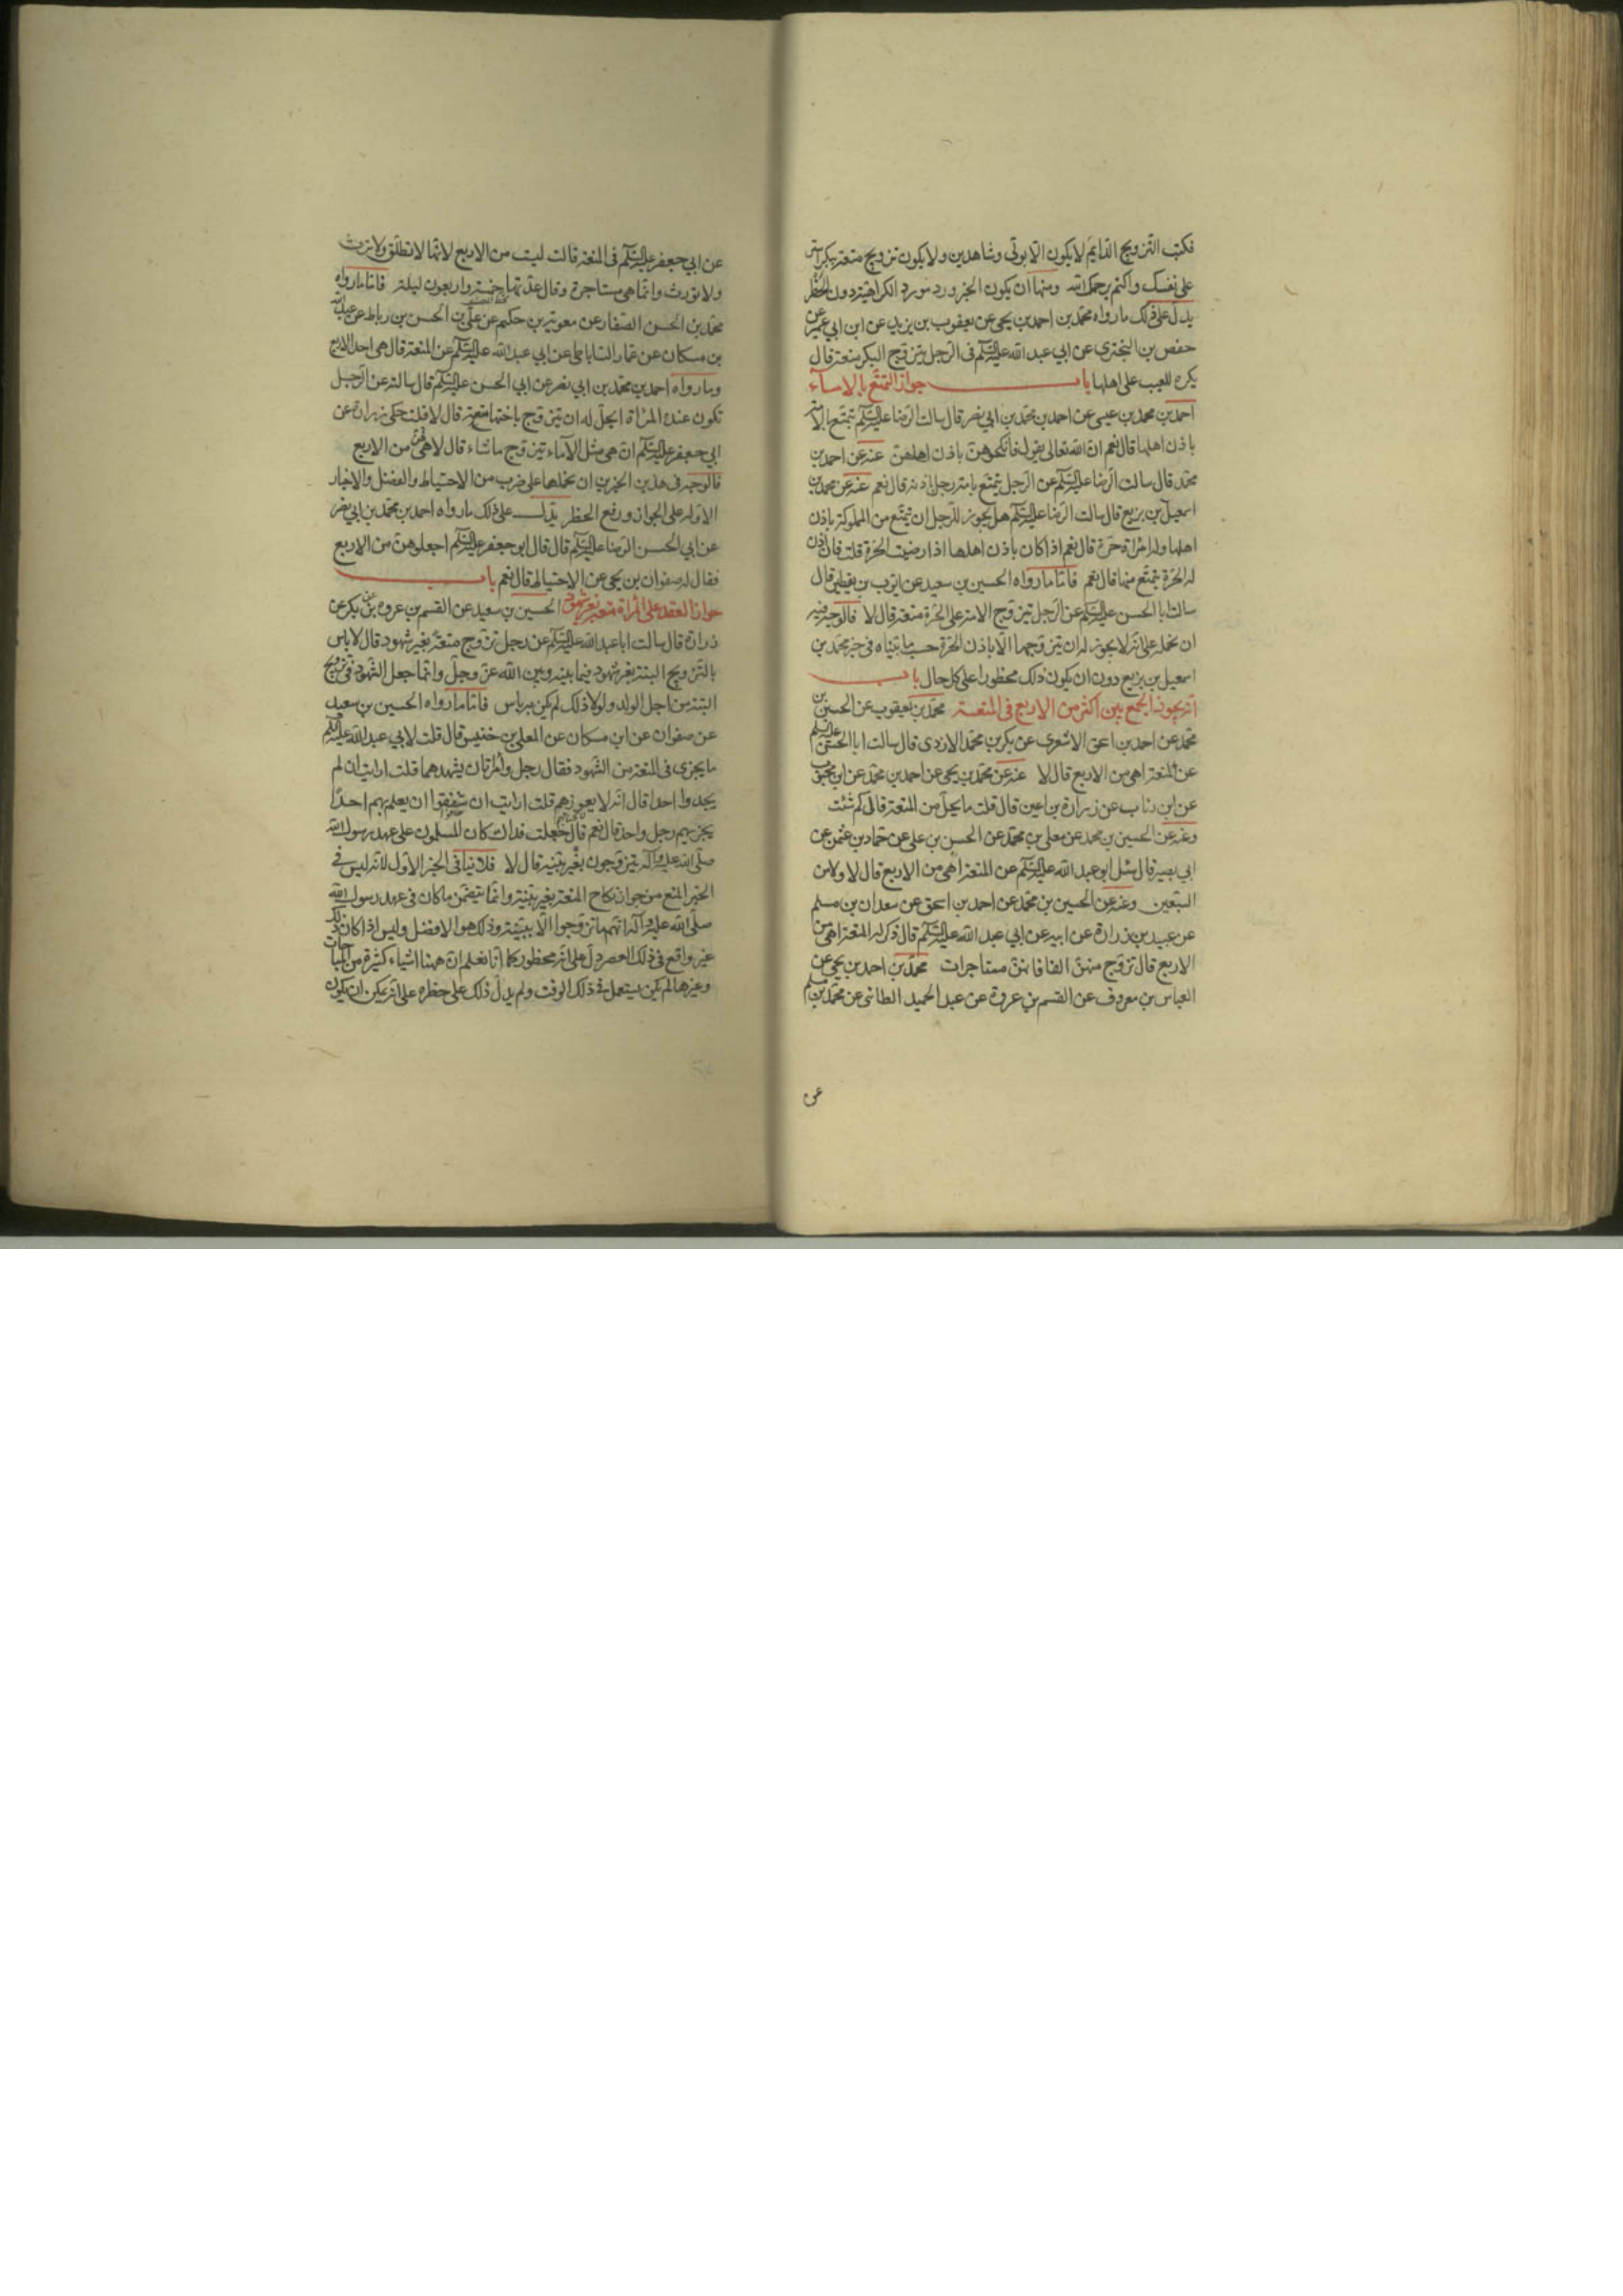 فكتب التزويج الدايم لا يكون الا بولى وشاهدين ولا يكون تزويج متعة ببكر استر
على نفسك واكتم رحمك الله ومنها ان يكون الخبر ورد مورد الكراهية دون الحظر
يدل على ذلك ما رواه محمد بن احمد بن يحيى عن يعقوب بن يزيد عن ابن ابي عمير عن
حفص بن البختري عن ابي عبد الله عليه السلم في الرجل يتزوج البكر متعة قال
يكره للعيب على اهلها باب جواز التمتع بالاماء
احمد بن محمد بن عيسى عن احمد بن محمد بن ابي نصر قال سالت الرضا عليه السلم يتمتع بالامة
باذن اهلها قال نعم ان الله تعالى يقول فانكحوهن باذن اهلهن عنه عن احمد بن
محمد قال سالت الرضا عليه السلم عن الرجل يتمتع بامة رجل باذنه قال نعم عنه عن محمد بن
اسمعيل بن بزيع قال سالت الرضا عليه السلم هل يجوز للرجل ان يتمتع من المملوكة باذن
اهلها وله امراة حرة قال نعم اذا كان باذن اهلها اذا رضيت الحرة قلت فان اذن
له الحرة يتمتع منها قال نعم فاما ما رواه الحسين بن سعيد عن بن يقطين قال
سالت ابا الحسن عليه السلم عن الرجل يتزوج الامة على الحرة متعة قال لا فالوجه فيه
ان نحمله على انه لا يجوز له ان يتزوجها الا باذن الحرة حسب ما بيناه في خبر محمد بن
اسمعيل بن بزيع دون ان يكون ذلك محظورا على كل حال باب
انه يجوز الجمع بين اكثر من الاربع في المتعة محمد بن يعقوب عن الحسين بن
محمد عن احمد بن اسحق الاشعري عن بكر بن محمد الازدي قال سالت ابا الحسن عليه السلم
عن المتعة اهي من الاربع قال لا عنه عن محمد بن يحيى عن احمد بن محمد عن ابن محبوب
عن ابن رئاب عن زرارة بن اعين قال قلت ما يحل من المتعة قال كم شئت
وعنه عن الحسين بن محمد عن معلى بن محمد عن الحسن بن علي عن حماد بن عثمن عن
ابي بصير قال سئل ابو عبد الله عليه السلم عن المتعة اهي من الاربع قال لا ولا من
السبعين وعنه عن الحسين بن محمد عن احمد بن اسحق عن سعدان بن مسلم
عن عبيد بن زرارة عن ابيه عن ابي عبد الله عليه السلم قال ذكر له المتعة اهي من
الاربع قال تزوج منهن الفا فانهن مستاجرات محمد بن احمد بن يحيى عن
العباس بن معروف عن القسم بن عروة عن عبد الحميد الطائي عن محمد بن مسلم
عن
عن ابي جعفر عليه السلم في المتعة قالت ليست من الاربع لانها لا تطلق ولا ترث
ولا تورث وانما هي مستاجرة وقال عدتها خمسة واربعون ليلة فاما ما رواه
محمد بن الحسن الصفار عن معوية بن حكيم عن علي بن الحسن بن رباط عن عبد الله
بن مسكان عن عمار الساباطي عن ابي عبد الله عليه السلم عن المتعة قال هي احد الاربع
وما رواه احمد بن محمد بن ابي نصر عن ابي الحسن عليه السلم قال سالته عن الرجل
تكون عنده المراة ايحل له ان يتزوج باختها متعة قال لا قلت حكى زرارة عن
ابي جعفر عليه السلم ان هي مثل الاماء يتزوج ما شاء قال لا هي من الاربع
فالوجه في هذين الخبرين ان نحملها على ضرب من الاحتياط والفضل والاخبار
الاولة على الجواز ورفع الحظر يدل على ذلك ما رواه احمد بن محمد بن ابي نصر
عن ابي الحسن الرضا عليه السلم قال قال ابو جعفر عليه السلم اجعلوهن من الاربع
فقال له صفوان بن يحيى عن الاحتياط قال نعم باب
جواز العقد على المراة متعة بغير شهود الحسين بن سعيد عن القسم بن عروة عن ابن بكير عن
زرارة قال سالت ابا عبد الله عليه السلم عن رجل تزوج متعة بغير شهود قال لا باس
بالتزويج البتة بغير شهود فيما بينه وبين الله عز وجل وانما جعل الشهود في تزويج
البتة من اجل الولد ولولا ذلك لم يكن به باس فاما ما رواه الحسين بن سعيد
عن صفوان عن ابن مسكان عن المعلى بن خنيس قال قلت لابي عبد الله عليه السلم
ما يجزى في المتعة من الشهود فقال رجل وامراتان يشهدهما قلت ارايت ان لم
يجدوا احدا قال انه لا يعوزهم قلت ارايت ان شفقوا ان يعلم بهم احدا
يجزيهم رجل واحد قال نعم قال جعلت فداك كان المسلمون على عهد رسول الله
صلى الله عليه وآله يتزوجون بغير بينة قال لا فلا ينافى الخبر الاول لانه ليس في
الخبر المنع من جواز نكاح المتعة بغير بينة وانما يتضمن ما كان في عهد رسول الله
صلى الله عليه وآله انهم ما تزوجوا الا ببينة وذلك هو الافضل وليس اذا كان ذلك
غير واقع في ذلك العصر دل على انه محظور كما انا نعلم ان ههنا اشياء كثيرة من المباحات
وغيرها لم يكن يستعمل في ذلك الوقت ولم يدل ذلك على حظره على انه يمكن ان يكون